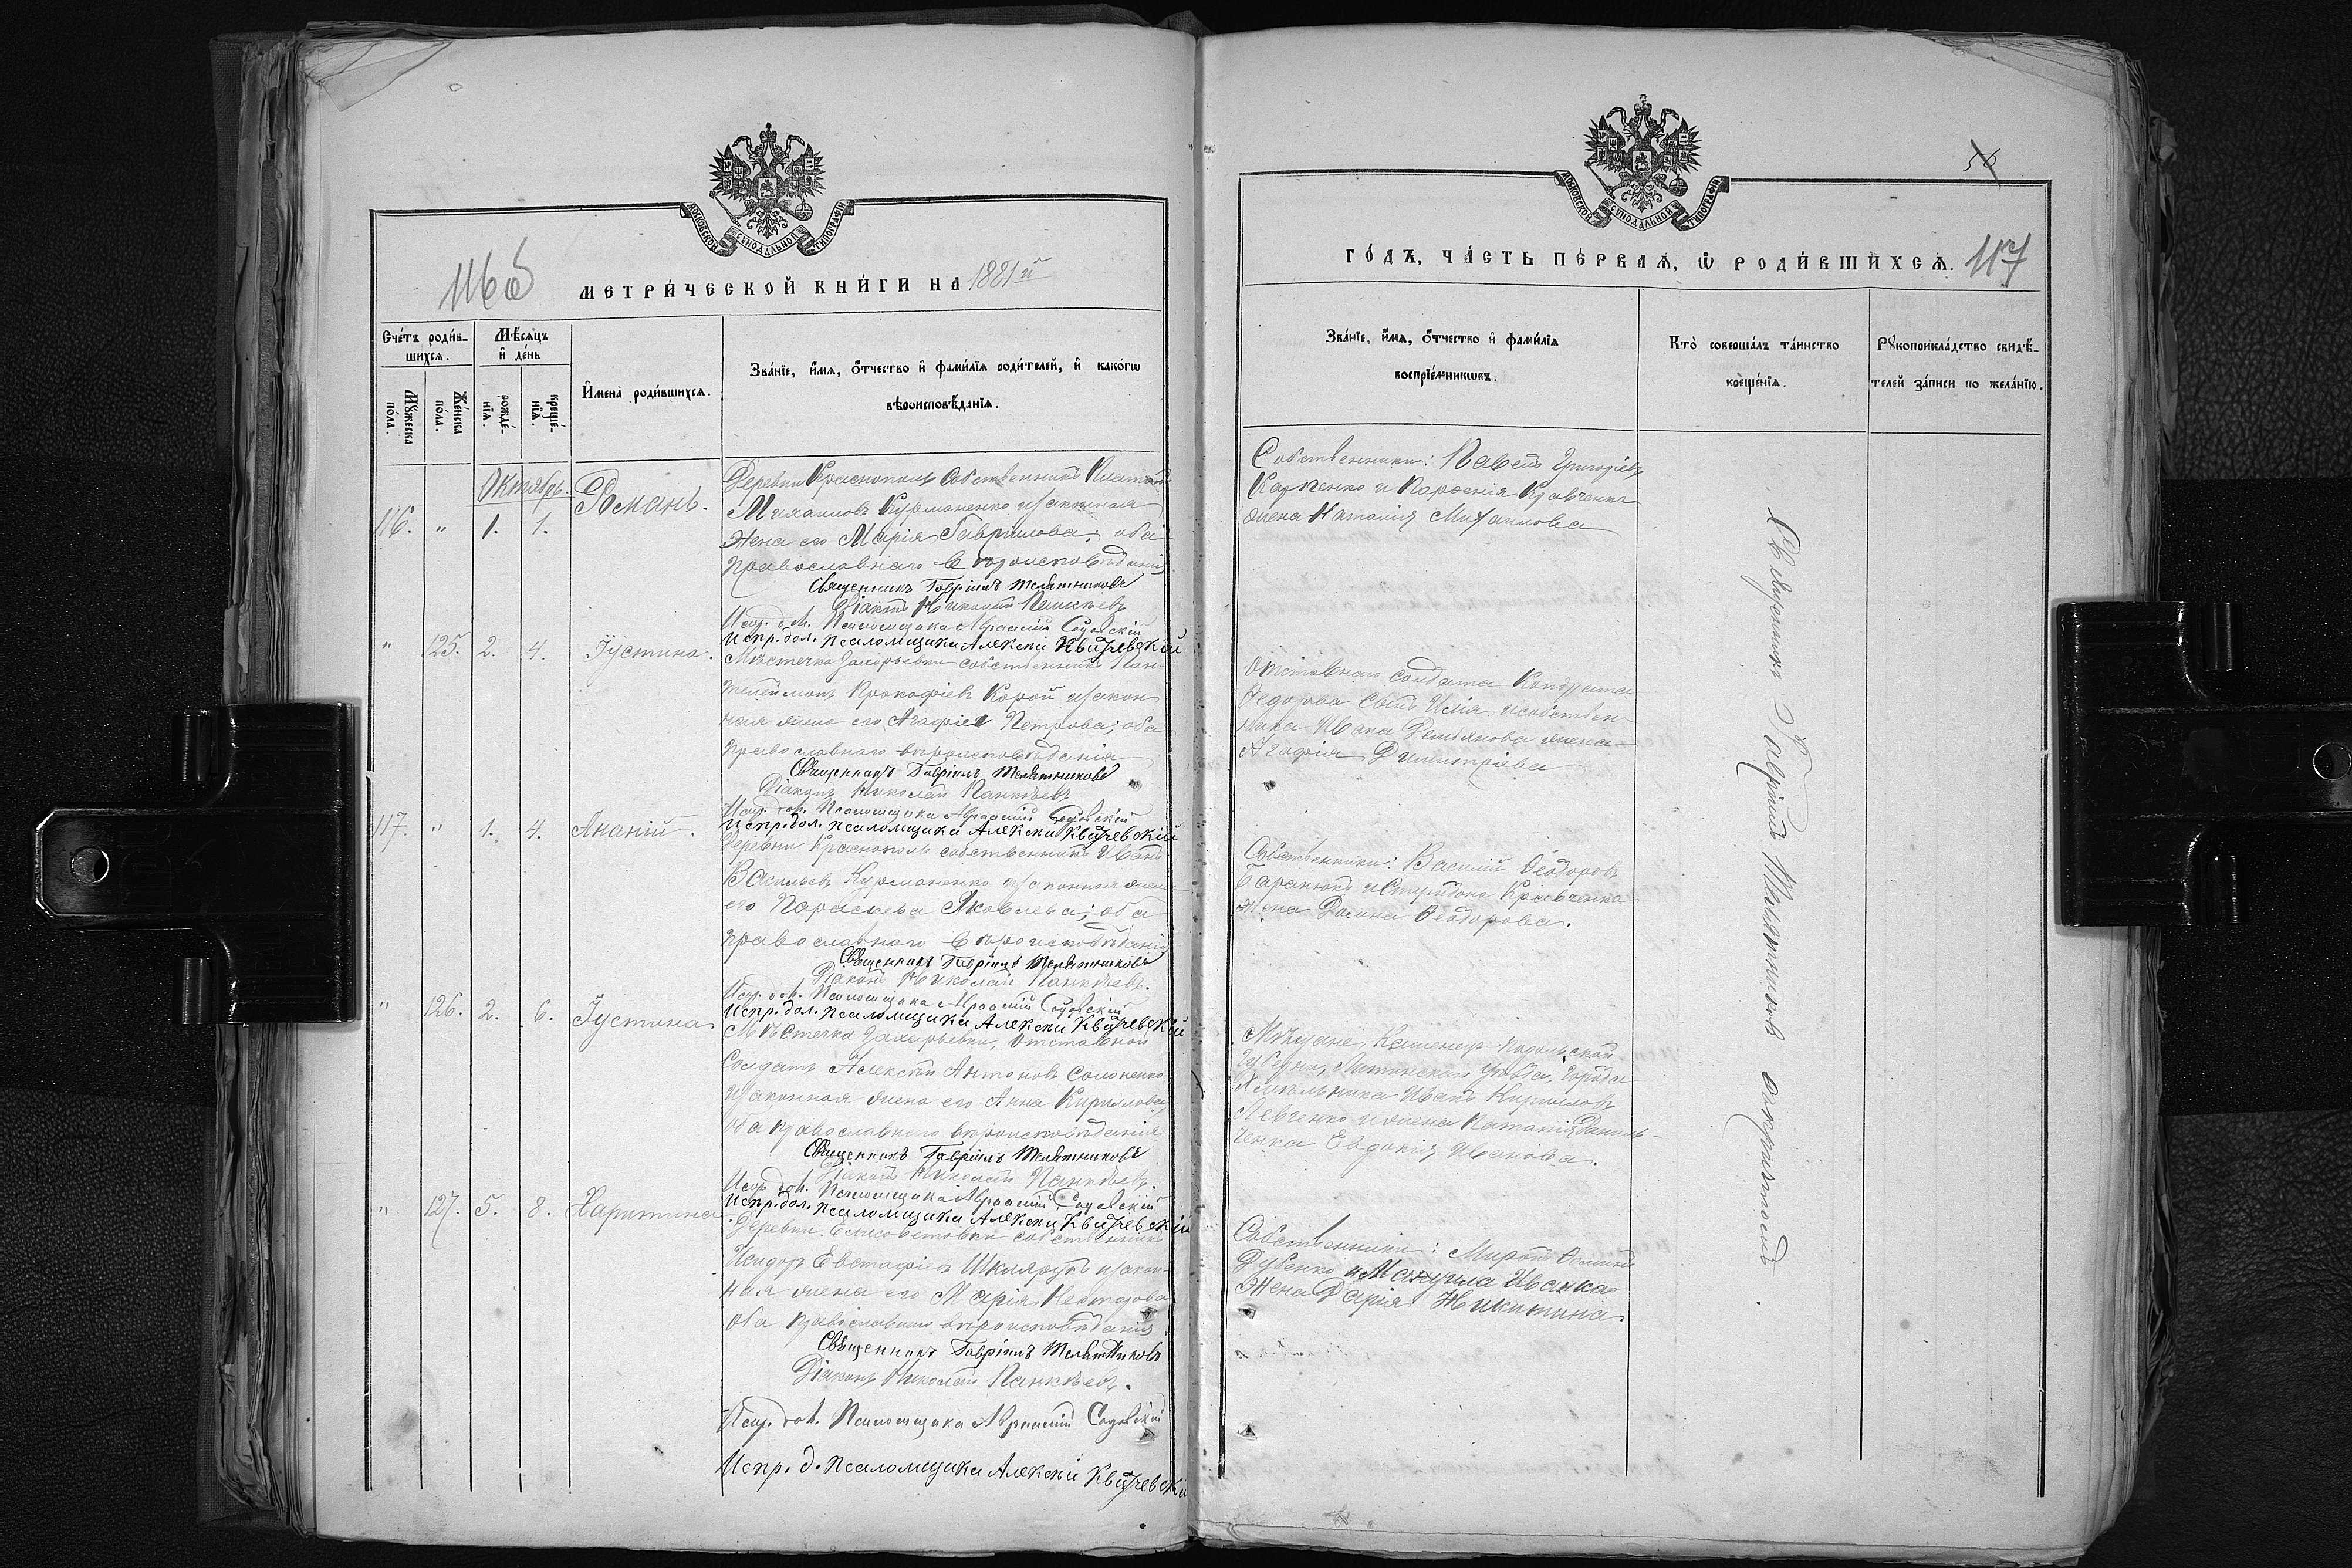 116об
МОСКОВСКОЙ СѴНОДАЛЬНОЙ ТИПОГРАФІИ
МЕТРИ́ЧЕСКОЙ КНИ́ГИ НА 1881й
Сче́тъ роди́в-
шихся.
Мѣ́сяцъ
и҆ де́нь
Мꙋ́жеска
по́ла.
Же́нска
по́ла.
рожде́-
нїѧ.
креще́-
нїѧ.
И҆мена̀ роди́вшихсѧ.
Зва́нїе, и҆́мѧ, ѻ҆́тчество и҆ фами́лїѧ роди́телей, и҆ како́гѡ
вѣроисповѣ́данїѧ.
Октябрь.
116. " 1. 1. Романъ.
Деревни Краснополь собственникъ Платонъ
Михаиловъ Курманенко и законная
жена его Марія Гаврилова, оба
православнаго вѣроисповѣданія
Священникъ Гавріилъ Телятниковъ
Діаконъ Николай Панкѣевъ
Испр. дол. Псаломщика Авраамій
Испр. дол. псаломщика Алексѣй
" 125. 2. 4. Іустина.
Мѣстечка Захарьевки собственникъ Пан-
телеймонъ Прокофіевъ Корой и закон-
ная жена его Агафія Петрова; оба
православнаго вѣроисповѣданія
Священникъ Гавріилъ Телятниковъ
Діаконъ Николай Панкѣевъ
Испр. дол. Псаломщика Авраамій
Испр. дол. псаломщика Алексѣй
117. " 1. 4. Ананій.
Деревни Краснополь собственникъ Иванъ
Васильевъ Курманенко и законная жена
его Параскева Яковлева; оба
православнаго вѣроисповѣданія
Священникъ Гавріилъ Телятниковъ
Діаконъ Николай Панкѣевъ.
Испр. дол. Псаломщика Авраамій
Испр. дол. псаломщика Алексѣй
" 126. 2. 6. Іустина
Мѣстечка Захарьевки, отставной
солдатъ Алексѣй Антоновъ Солоненко
и законная жена его Анна Кириллова,
оба православнаго вѣроисповѣданія
Священникъ Гавріилъ Телятниковъ
Діаконъ Николай Панкѣевъ.
Испр. дол. Псаломщика Авраамій
Испр. дол. псаломщика Алексѣй
" 127. 5. 8. Харитина
Деревни Елисаветовки собственникъ
Исидоръ Евстафіевъ Шкляръ и закон-
ная жена его Марія Несторова
оба православнаго вѣроисповѣданія.
Священникъ Гавріилъ Телятниковъ
Діаконъ Николай Панкѣевъ.
Испр. дол. Псаломщика Авраамій
Испр. д. псаломщика Алексѣй
56
МОСКОВСКОЙ СѴНОДАЛЬНОЙ ТИПОГРАФІИ
ГО́ДЪ, ЧА́СТЬ ПЕ́РВАѦ, Ѡ҆ РОДИ́ВШИХСѦ. 117
Зва́нїе, и҆́мѧ, ѻ҆́тчество и҆ фами́лїѧ
воспрїе́мникѡвъ.
Кто̀ соверша́лъ та́инство
креще́нїѧ.
Рꙋкоприкла́дство свидѣ́-
телей за́писи по жела́нїю.
Собственники: Павелъ Григоріевъ
Карпенко и Кравченка
жена Наталія Михаилова
Отставнаго солдата Кондрата
Ѳедорова сынъ Илія и собствен-
ника Ивана Демьянова жена
Агафія Димитріева
Собственники: Василій Ѳеодоровъ
Баранюкъ и Спиридона Кравченка
жена Ѳеодорова.
Мѣщане, Каменецъ-Подольской
губерніи, Литинскаго уѣзда, города
Хмельника Иванъ Кирилловъ
Левченко и жена
Евдокія Иванова.
Собственники: Миронъ
Дубенко и Иванка
жена Дарія Никитина.
Священникъ Гавріилъ Телятниковъ